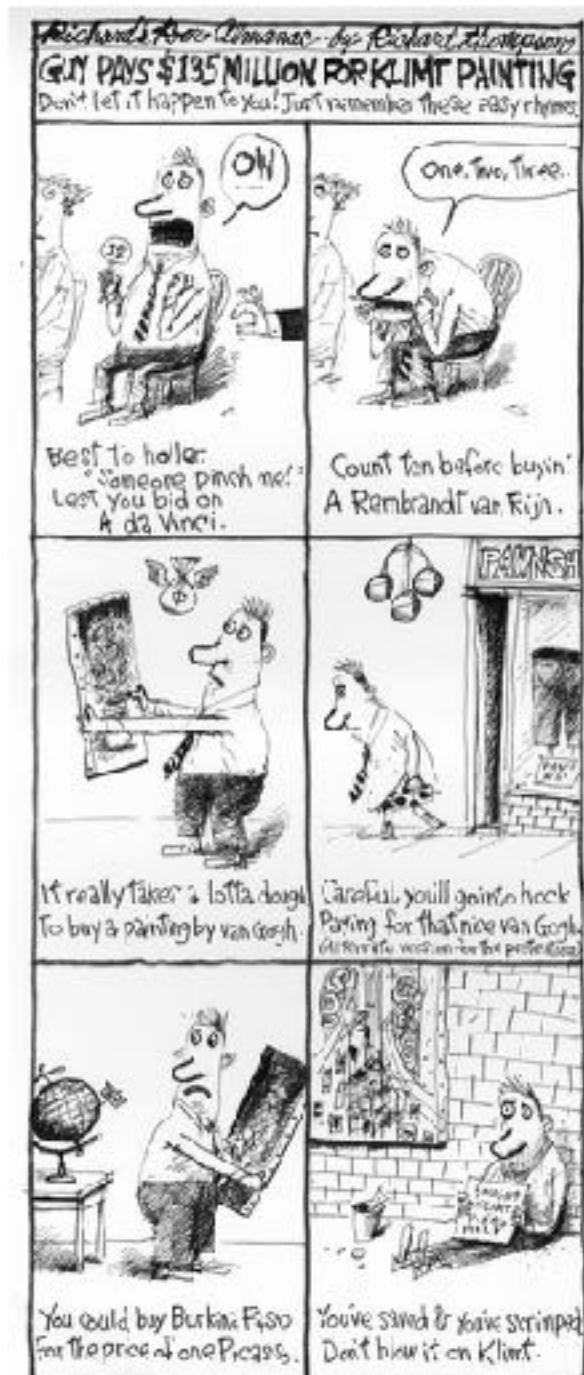 Richard's Poor Almanac by Richard Thompson
GUY PAYS $135 MILLION FOR KLIMT PAINTING
Don't let it happen to you! Just remember these easy rhymes
OW
32
One, Two, Three..
Best to holler
"Someone pinch me!"
Lest you bid on
A da Vinci.
Count ten before buyin'
A Rembrandt van Rijn.
PAWNSH
It really takes a lotta dough
To buy a painting by van Gogh.
Careful, you'll go into hock
Paying for that nice van Gogh.
You could buy Burkina Faso
For the price of one Picasso.
You've saved & you've scrimped
Don't blow it on Klimt.